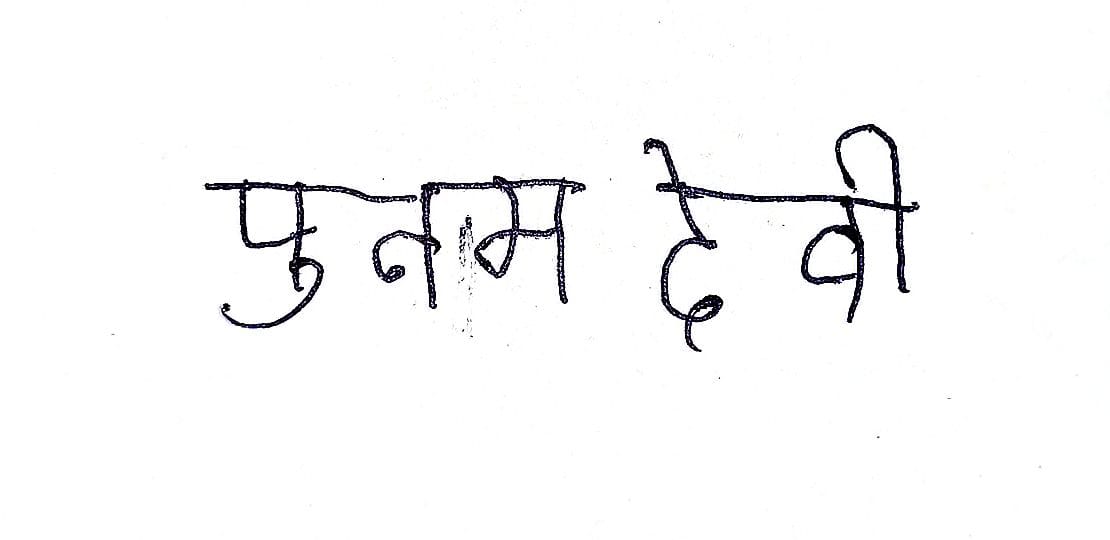 पुनम देवी